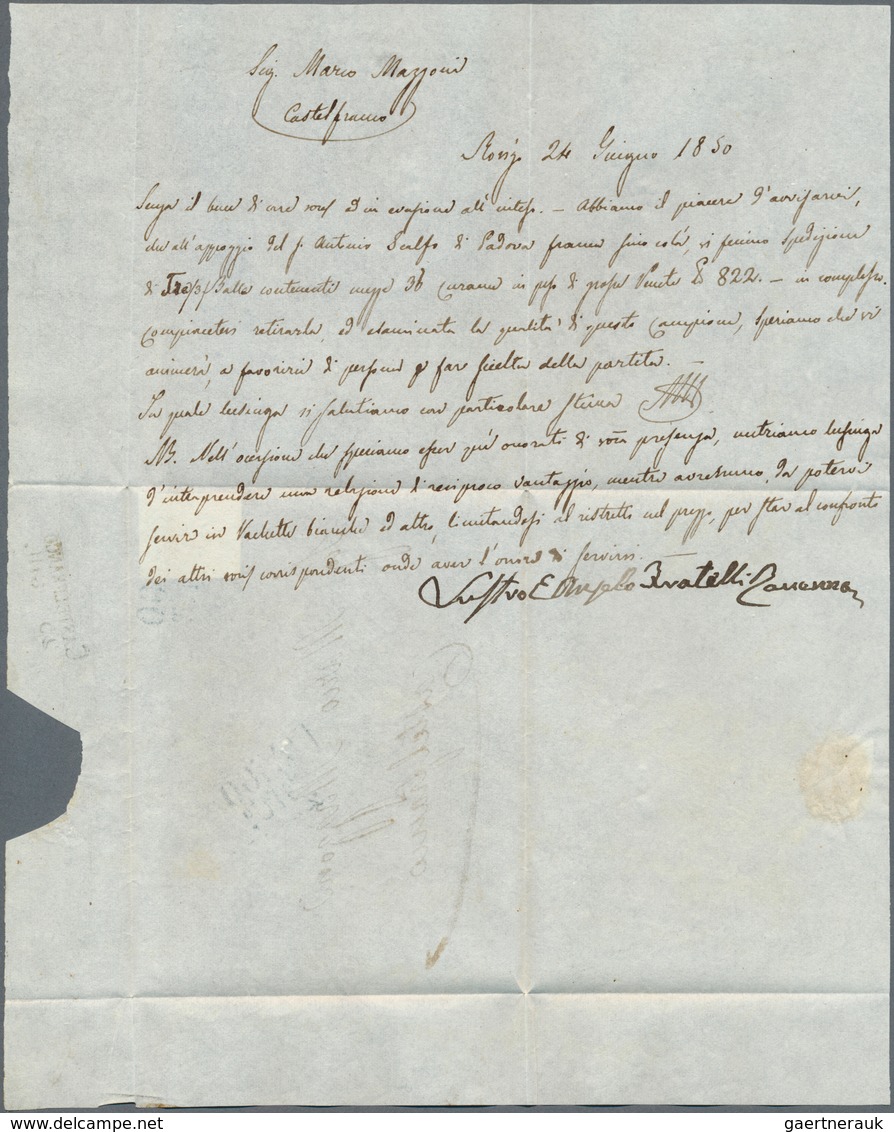 Sig. Marco Mazzoni
Castelfranco
Rovigo 24 Giugno 1850
Senza il bene di care vost ed in evasione all' inteso. — Abbiamo il piacere d'avvisarvi,
che all'appoggio del S. Antonio Scalfo di Padova franca fino colà, vi fecimo spedizione
di Tre/3/ Balle contenenti mezze 36 Corame in peso di grosse Venete ₶ 822. — in complesso.
Compiacetevi retirarla, ed esaminata la qualità di questo Campione, speriamo che vi
animerà, a favorirci di persona p far scielta della partita. —
In quale lusinga vi salutiamo con particolare stima
NB. Nell'occasione che speriamo esser più onorati di vostra presenza, nutriamo lusinga
d'intraprendere una relazione di reciproco vantaggio, mentre avressimo da potervi
servir in Vachette bianche ed altro, limitandosi al ristretto nel prezzo, per star al confronto
dei altri vost corrispondenti onde aver l'onore di servirvi. —
Lustro E Angelo Fratelli
Castelfranco
gaertnerauk